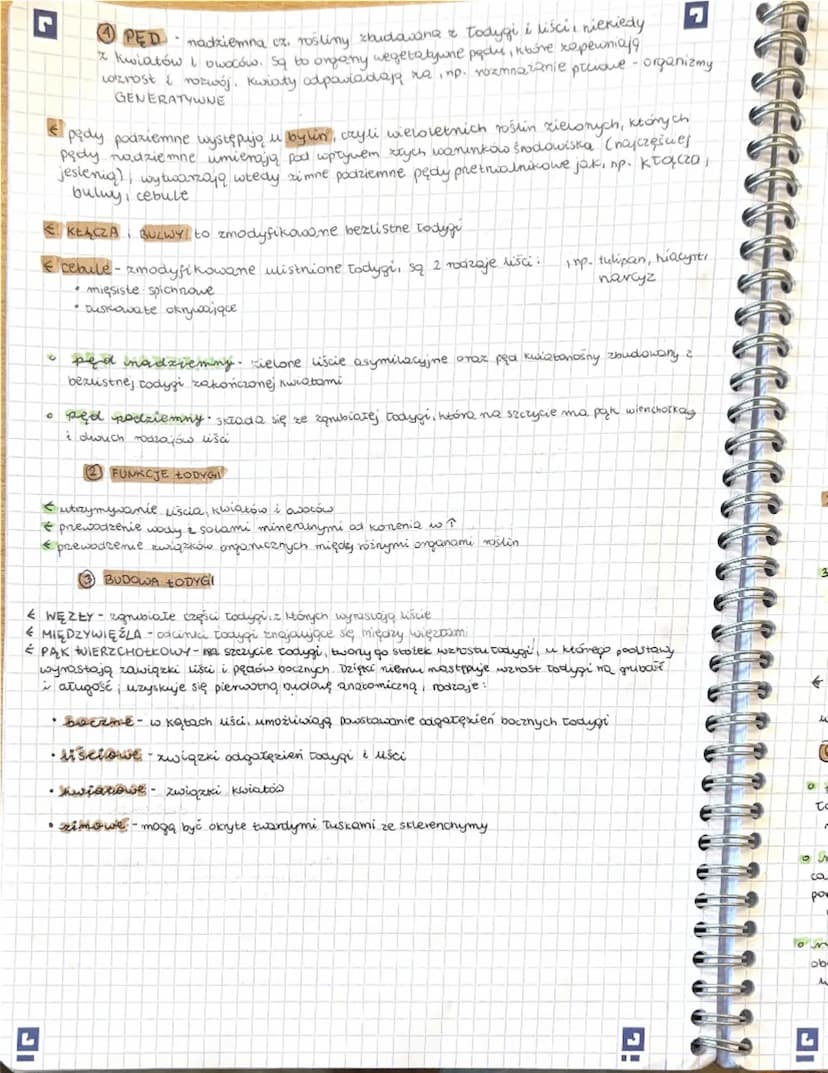 ① PĘD - nadziemna cz. rośliny zbudowana z łodygi i liści, niekiedy
z kwiatów i owoców. Są to organy wegetatywne pędu, które zapewniają
wzrost i rozwój. Kwiaty odpowiadają za, np. rozmnażanie płciowe - organizmy
GENERATYWNE
pędy podziemne występują u bylin, czyli wieloletnich roślin zielonych, których
pędy nadziemne umierają pod wpływem złych warunków środowiska (najczęściej
jesienią), wytwarzają wtedy zimne podziemne pędy przetrwalnikowe jak, np. kłącza,
bulwy, cebule
KŁĄCZA i BULWY to zmodyfikowane bezlistne łodygi
cebule - zmodyfikowane ulistnione łodygi, są 2 rodzaje liści: , np. tulipan, hiacynt,
narcyz
• mięsiste spichrzowe
• łuskowate okrywające
pęd nadziemny - zielone liście asymilacyjne oraz pęd kwiatonośny zbudowany z
bezlistnej łodygi zakończonej kwiatami
pęd podziemny - składa się ze zgrubiałej łodygi, która na szczycie ma pąk wierzchołkowy
i dwóch rodzajów liści
② FUNKCJE ŁODYGI
utrzymywanie liścia, kwiatów i owoców
przewodzenie wody z solami mineralnymi od korzenia w ↑
przewodzenie związków organicznych między różnymi organami roślin
③ BUDOWA ŁODYGI
WĘZŁY - zgrubiałe części łodygi, z których wyrastają liście
MIĘDZYWIĘŹLA - odcinki łodygi znajdujące się między węzłami
PĄK WIERZCHOŁKOWY - na szczycie łodygi, tworzy go stożek wzrostu łodygi, u którego podstawy
wyrastają zawiązki liści i pędów bocznych. Dzięki niemu następuje wzrost łodygi na grubość
i długość, uzyskuje się pierwotną budowę anatomiczną, rodzaje:
• boczne - w kątach liści, umożliwiają powstawanie odgałęzień bocznych łodygi
• liściowe - związki odgałęzień łodygi i liści
• kwiatowe - związki kwiatów
• zimowe - mogą być okryte twardymi łuskami ze sklerenchymy